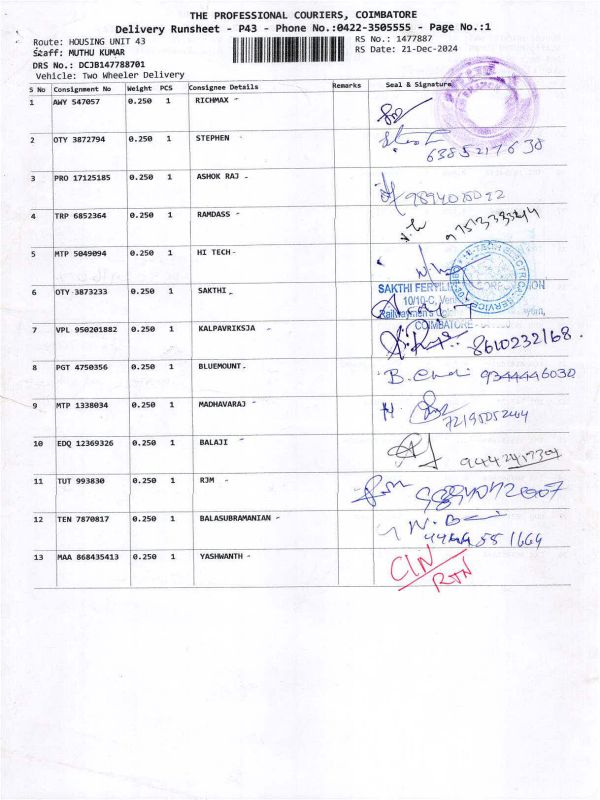 THE PROFESSIONAL COURIERS, COIMBATORE
Delivery Runsheet - P43 - Phone No.:0422-3505555 - Page No.:1
Route: HOUSING UNIT 43 RS No.: 1477887
Staff: MUTHU KUMAR RS Date: 21-Dec-2024
DRS No.: DCJB147788701
Vehicle: Two Wheeler Delivery
S No Consignment No Weight PCS Consignee Details Remarks Seal & Signature
1 AWY 547057 0.250 1 RICHMAX -
2 OTY 3872794 0.250 1 STEPHEN - 6385217638
3 PRO 17125185 0.250 1 ASHOK RAJ -
4 TRP 6852364 0.250 1 RAMDASS -
5 MTP 5049094 0.250 1 HI TECH -
6 OTY 3873233 0.250 1 SAKTHI - SAKTHI
10/10-C,
COIMBATORE
7 VPL 950201882 0.250 1 KALPAVRIKSJA - 8610232168.
8 PGT 4750356 0.250 1 BLUEMOUNT. B. 9344446030
9 MTP 1338034 0.250 1 MADHAVARAJ - 7219505244
10 EDQ 12369326 0.250 1 BALAJI -
11 TUT 993830 0.250 1 RJM -
12 TEN 7870817 0.250 1 BALASUBRAMANIAN -
13 MAA 868435413 0.250 1 YASHWANTH - CIN
RTN